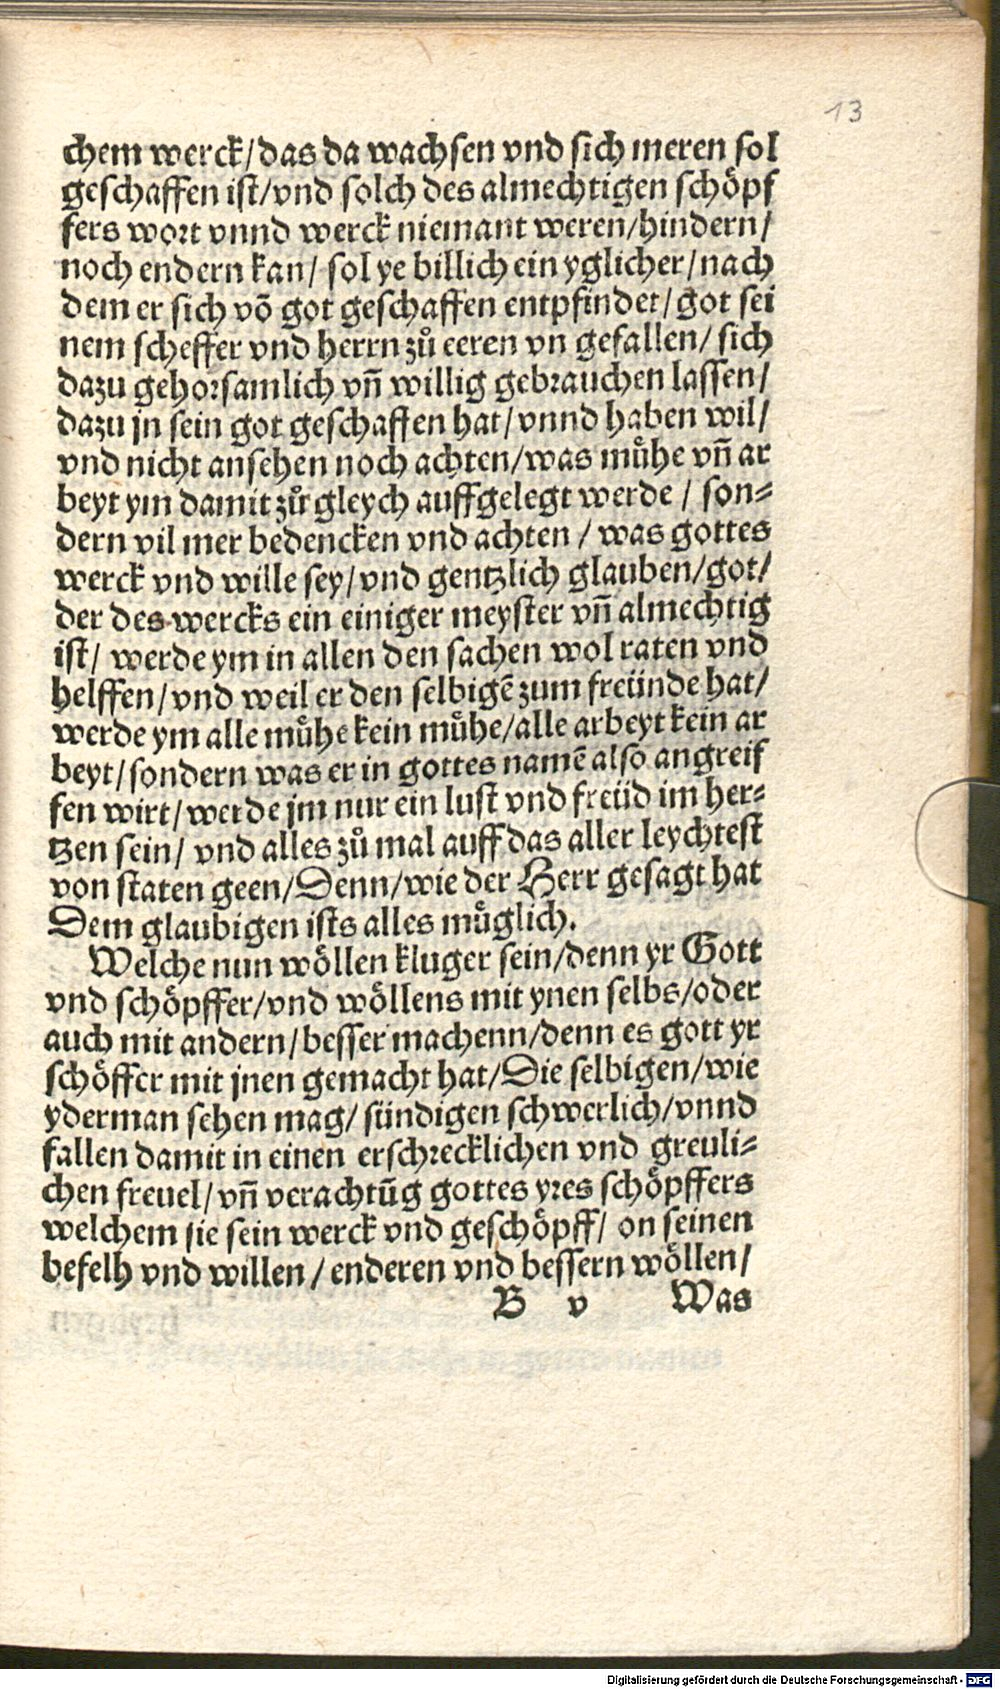 13
chem werck/das da wachsen vnd sich meren sol
geschaffen ist/vnd solch des almechtigen schöpf
fers wort vnnd werck niemant weren/hindern/
noch endern kan/ sol ye billich ein yglicher/nach
dem er sich võ got geschaffen entpfindet/got sei
nem scheffer vnd herrn zů eeren vn gefallen/ sich
dazu gehorsamlich vñ willig gebrauchen lassen/
dazu jn sein got geschaffen hat/vnnd haben wil/
vnd nicht ansehen noch achten/was můhe vñ ar
beyt ym damit zůr gleych auffgelegt werde / son⸗
dern vil mer bedencken vnd achten / was gottes
werck vnd wille sey/vnd gentzlich glauben/got/
der des wercks ein einiger meyster vñ almechtig
ist/ werde ym in allen den sachen wol raten vnd
helffen/vnd weil er den selbigẽ zum freünde hat/
werde ym alle můhe kein můhe/alle arbeyt kein ar
beyt/sondern was er in gottes namẽ also angreif
fen wirt/werde jm nur ein lust vnd freüd im her⸗
tzen sein/ vnd alles zů mal auff das aller leychtest
von staten geen/Denn/wie der Herr gesagt hat
Dem glaubigen ists alles můglich.
Welche nun wöllen kluger sein/denn yr Gott
vnd schöpffer/vnd wöllens mit ynen selbs/oder
auch mit andern/besser machenn/denn es gott yr
schöffer mit jnen gemacht hat/Die selbigen/wie
yderman sehen mag/ sündigen schwerlich/vnnd
fallen damit in einen erschrecklichen vnd greuli⸗
chen freuel/vñ verachtũg gottes yres schöpffers
welchem sie sein werck vnd geschöpff/ on seinen
befelh vnd willen / enderen vnd bessern wöllen/
B v Was
Digitalisierung gefördert durch die Deutsche Forschungsgemeinschaft - DFG